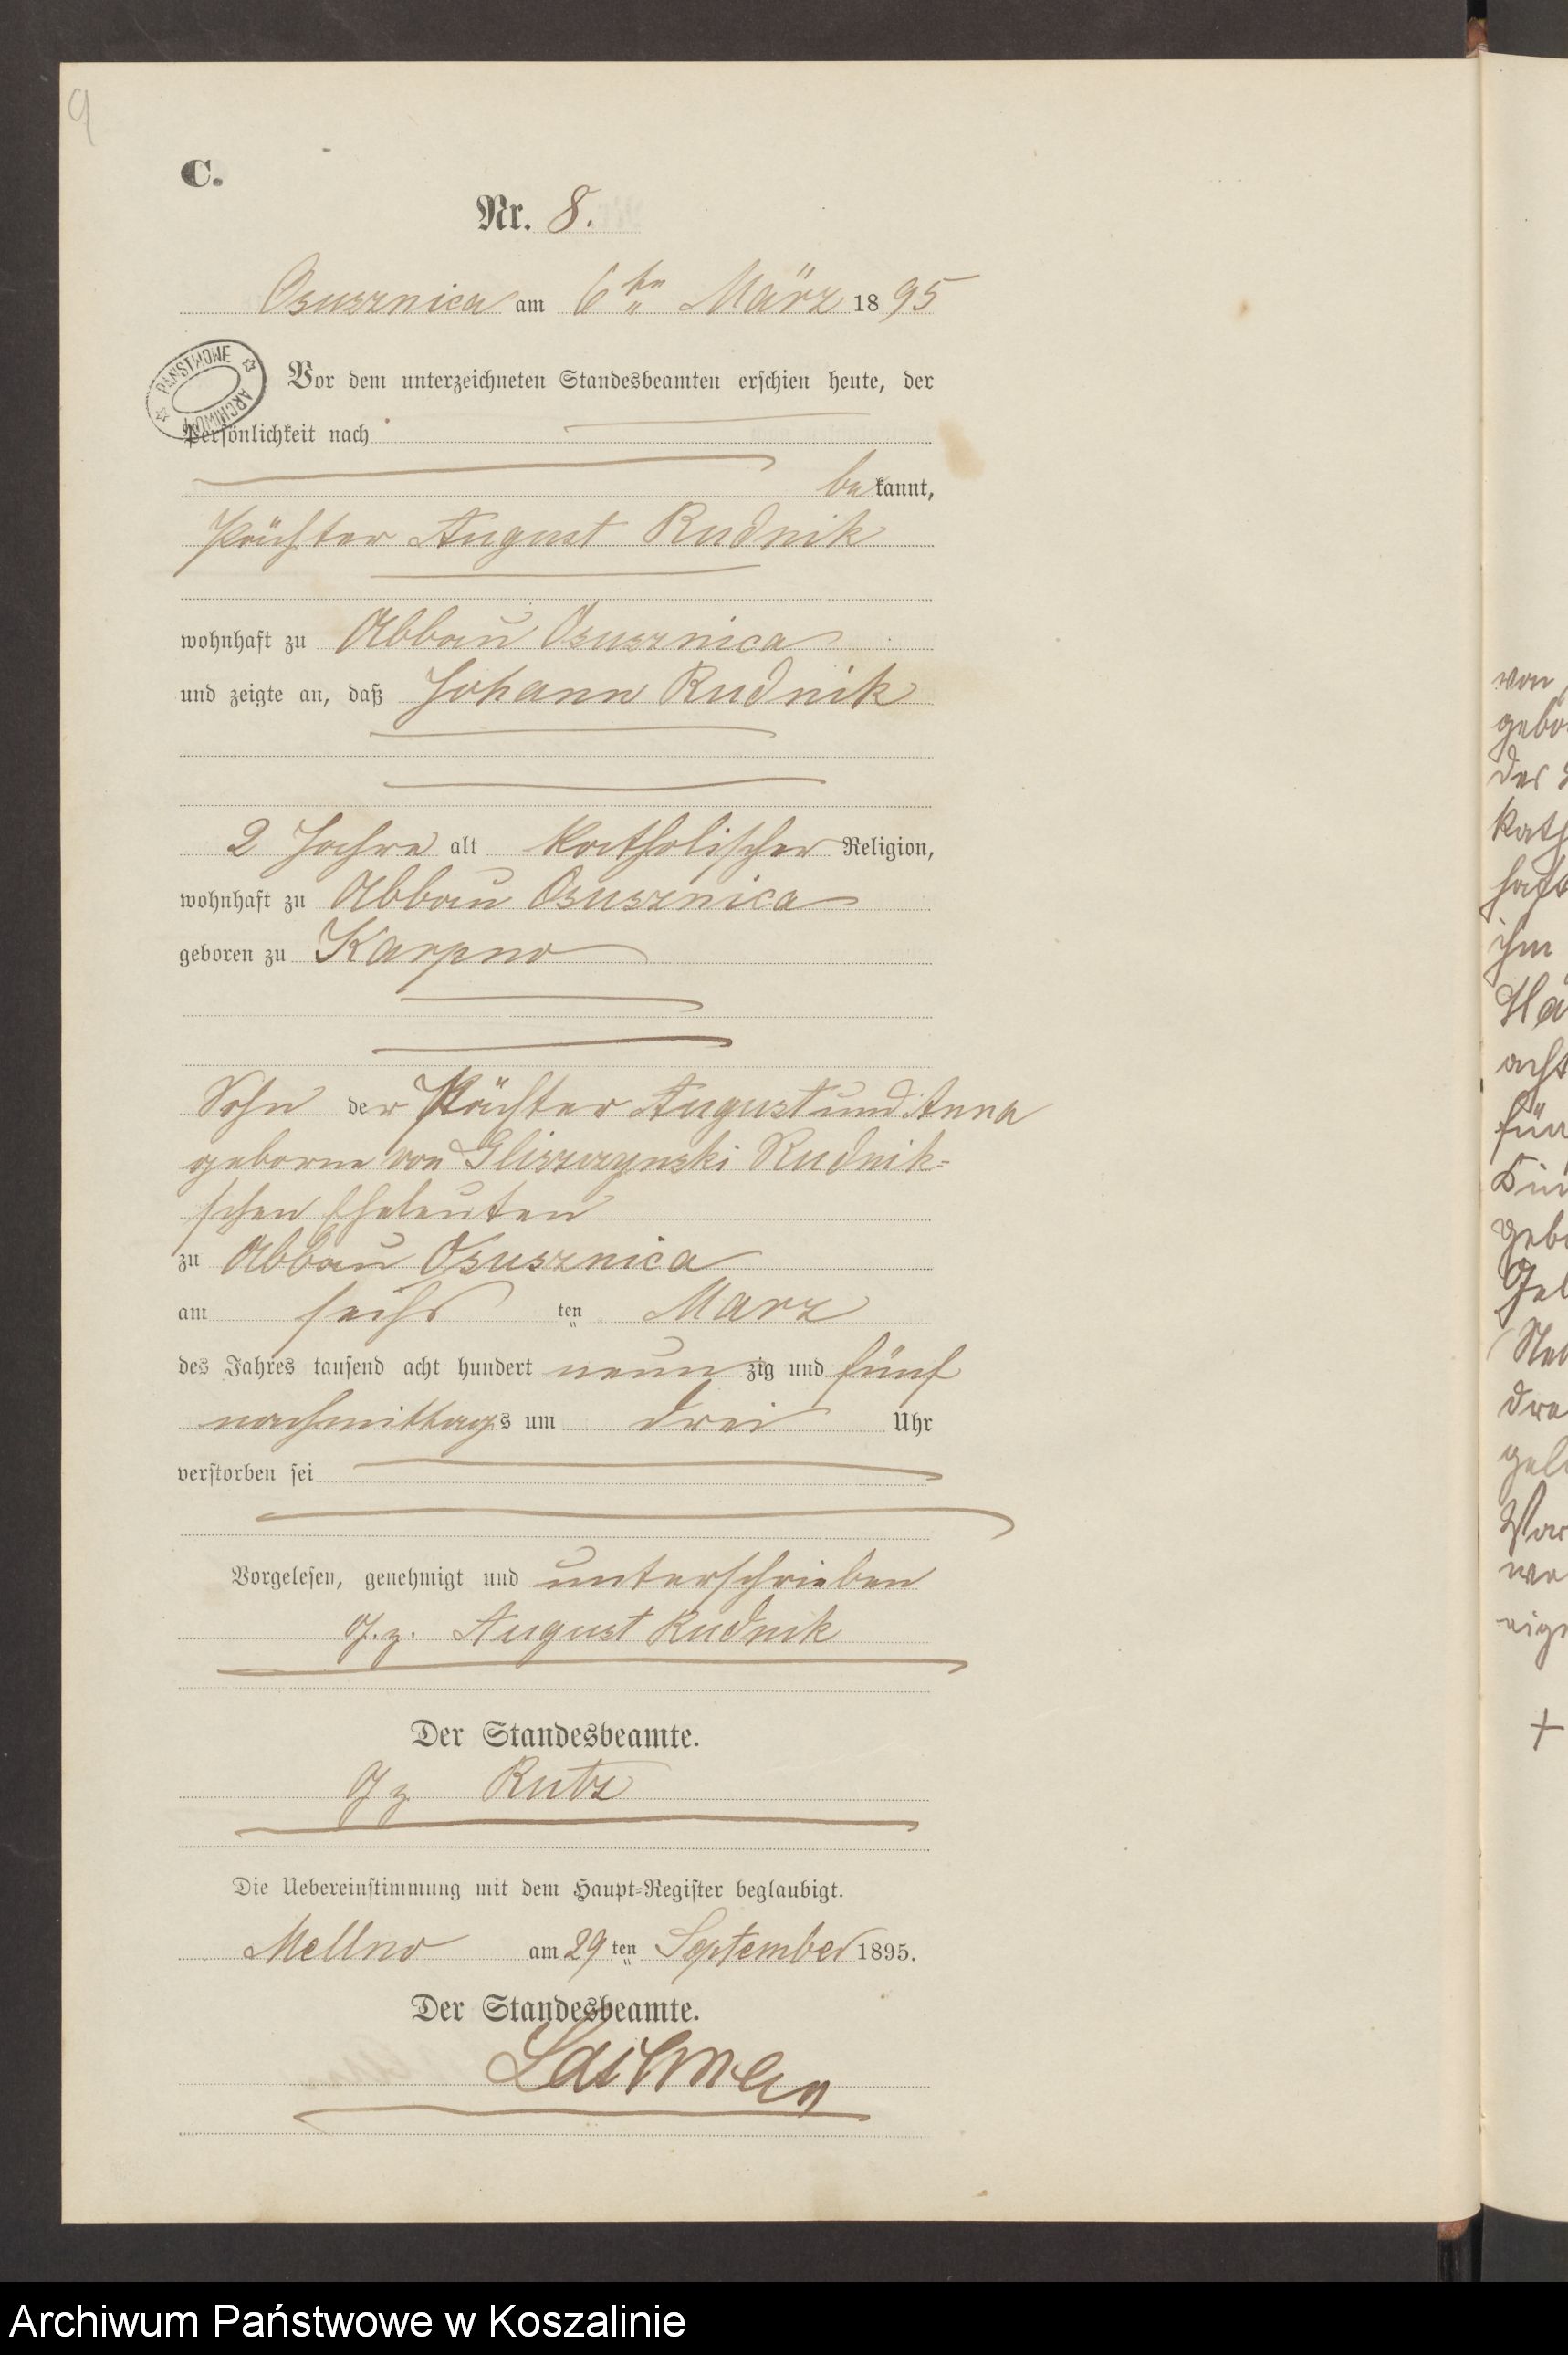 9
C.
Nr. 8.
Osusznica am 6ten März 1895
PAŃSTWOWE ARCHIWUM
Vor dem unterzeichneten Standesbeamten erschien heute, der
Persönlichkeit nach
bekannt,
Pächter August Rudnik
wohnhaft zu Abbau Osusznica
und zeigte an, daß Johann Rudnik
2 Jahre alt katholischer Religion,
wohnhaft zu Abbau Osusznica
geboren zu Karpno
Sohn der Pächter August und Anna
geborne von Gliszczynski Rudnik=
schen Eheleuten
zu Abbau Osusznica
am sechs ten März
des Jahres tausend acht hundert neunzig und fünf
nachmittags um drei Uhr
verstorben sei
Vorgelesen, genehmigt und unterschrieben
gz. August Rudnik
Der Standesbeamte.
gz Rutz
Die Uebereinstimmung mit dem Haupt=Register beglaubigt.
Mellno am 29 ten September 1895.
Der Standesbeamte.
von
gebo
der
kath
haft
ihm
acht
für
gebo
Gel
dre
Vor
+
Archiwum Państwowe w Koszalinie